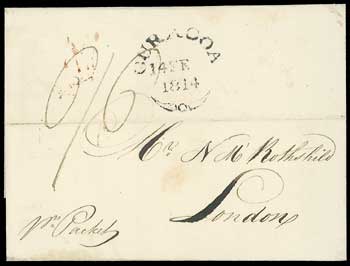 CURACOA
14 FE
1814
Mr. N M Rothschild
London
pr. Packet